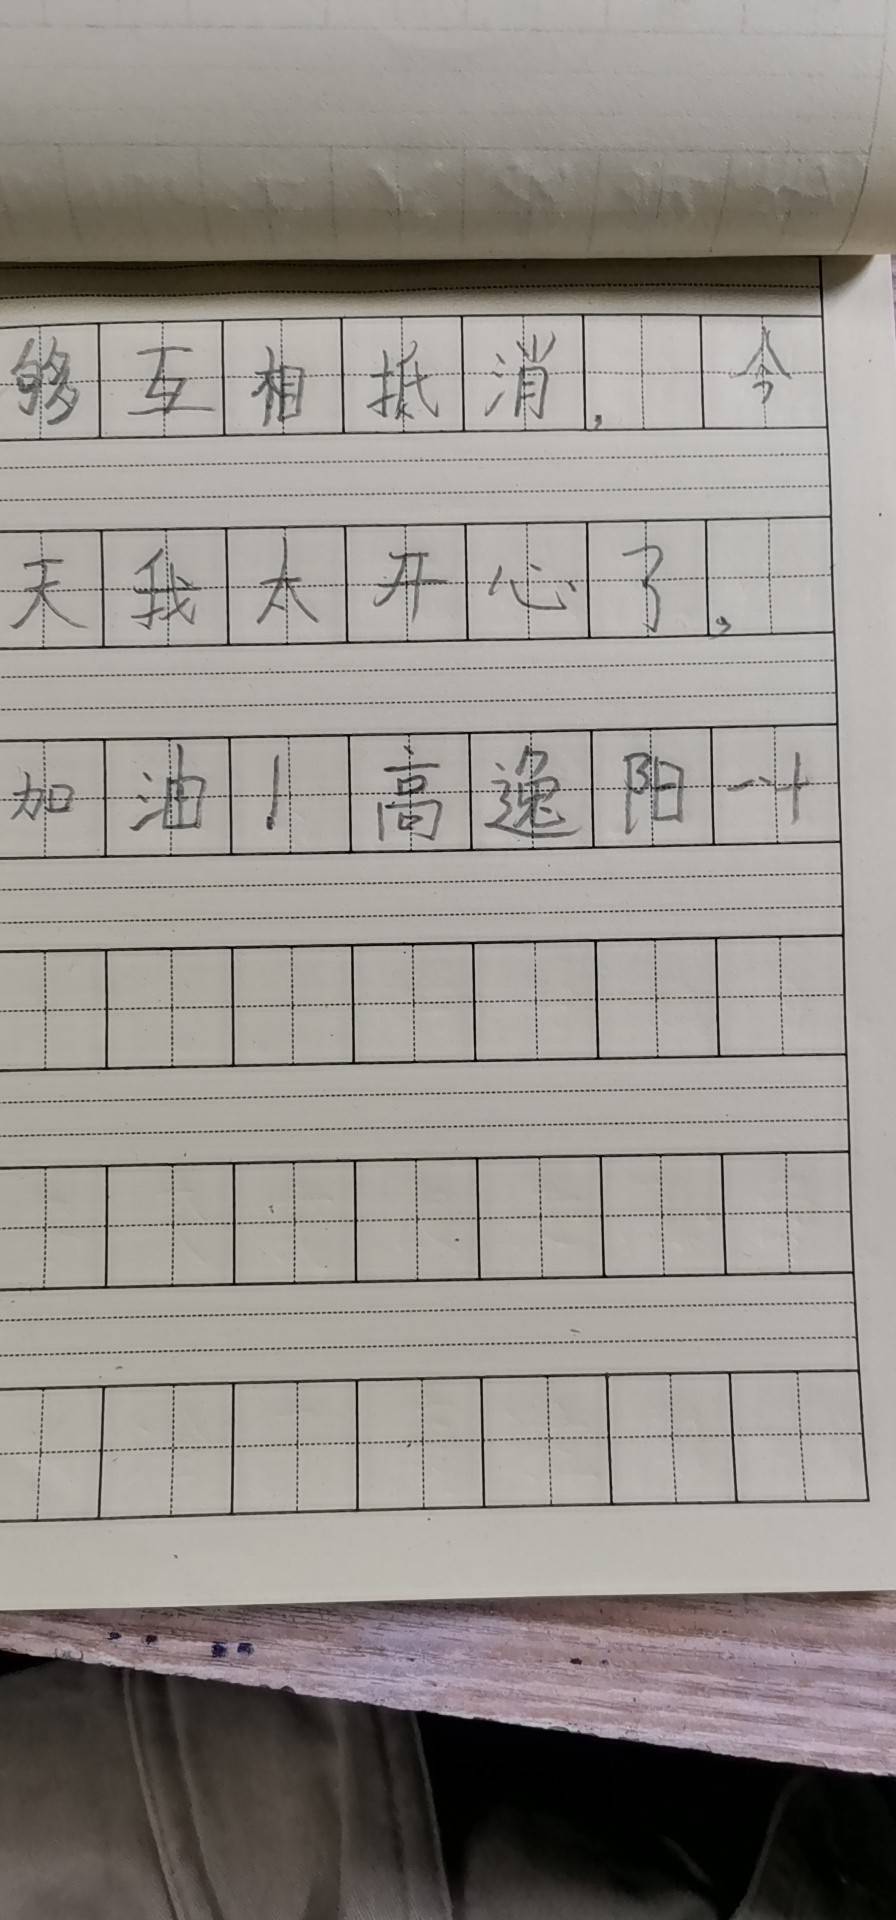 够互相抵消，今
天我太开心了，
加油！高逸阳